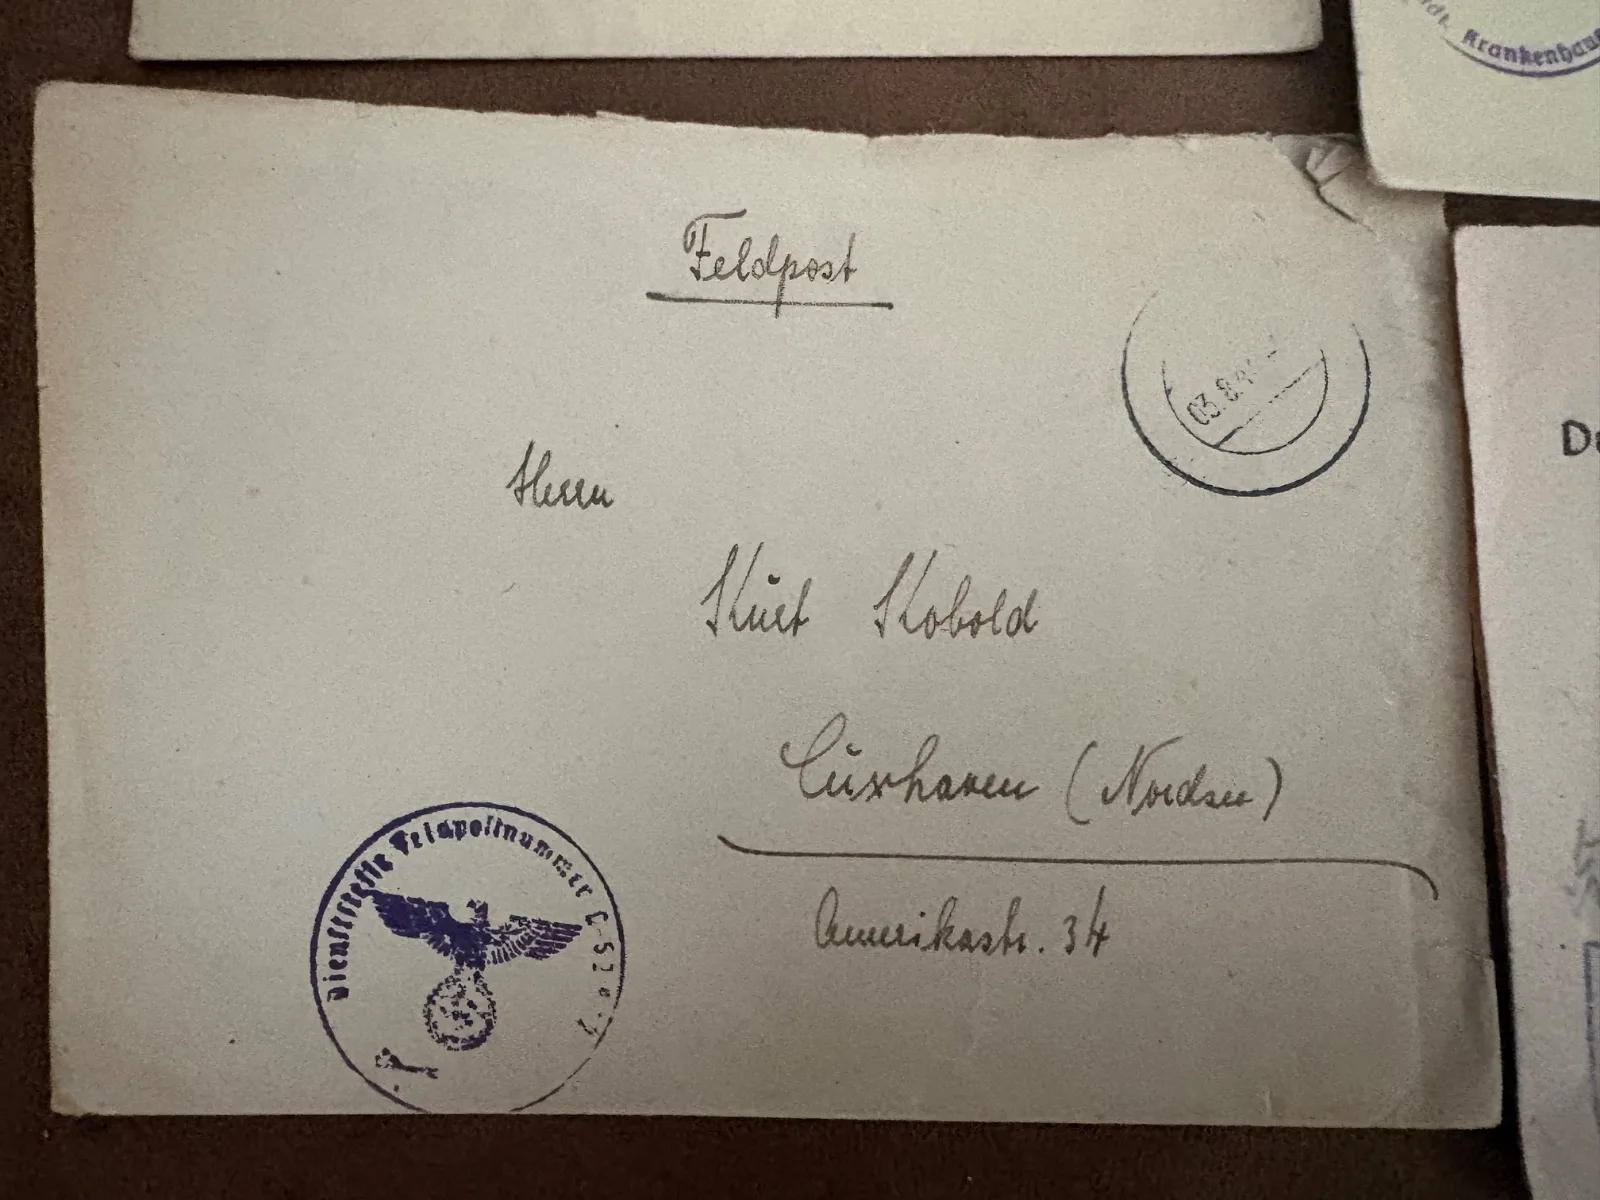 Krankenhaus
Feldpost
03.8.4
Herrn
Kurt Kobold
Cuxhaven (Nordsee)
Amerikastr. 34
Dienststelle Feldpostnummer